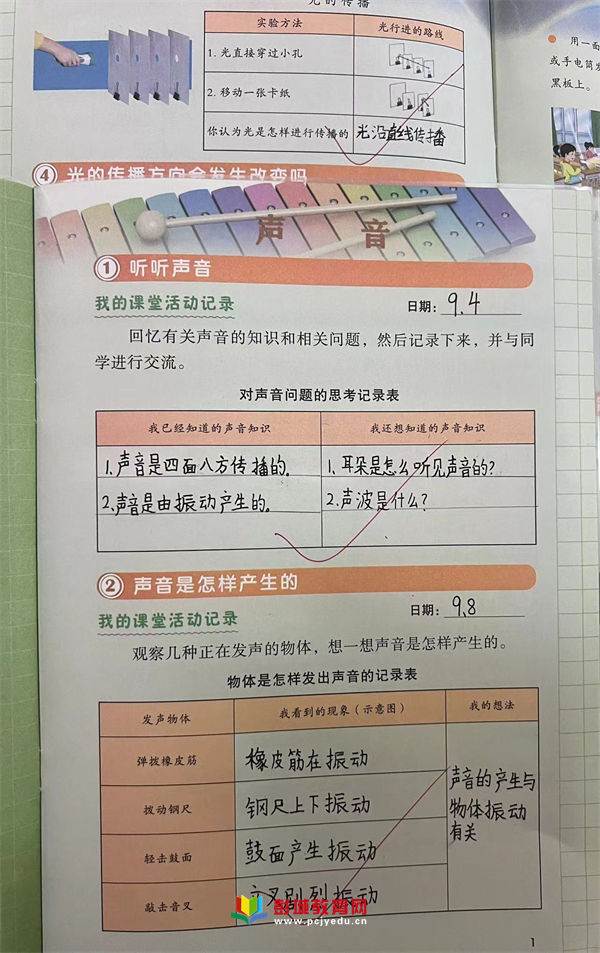 光的传播
实验方法
光行进的路线
1. 光直接穿过小孔
2. 移动一张卡纸
你认为光是怎样进行传播的
光沿直线传播
用一面
或手电筒发
黑板上。
4 光的传播方向会发生改变吗
声音
1 听听声音
我的课堂活动记录
日期：9.4
回忆有关声音的知识和相关问题，然后记录下来，并与同
学进行交流。
对声音问题的思考记录表
我已经知道的声音知识
我还想知道的声音知识
1.声音是四面八方传播的.
1、耳朵是怎么听见声音的?
2.声音是由振动产生的.
2.声波是什么?
2 声音是怎样产生的
我的课堂活动记录
日期：9.8
观察几种正在发声的物体，想一想声音是怎样产生的。
物体是怎样发出声音的记录表
发声物体
我看到的现象（示意图）
我的想法
弹拨橡皮筋
橡皮筋在振动
拨动钢尺
钢尺上下振动
轻击鼓面
鼓面产生振动
敲击音叉
振动
声音的产生与
物体振动
有关
教育网
www.pcjyedu.cn
1